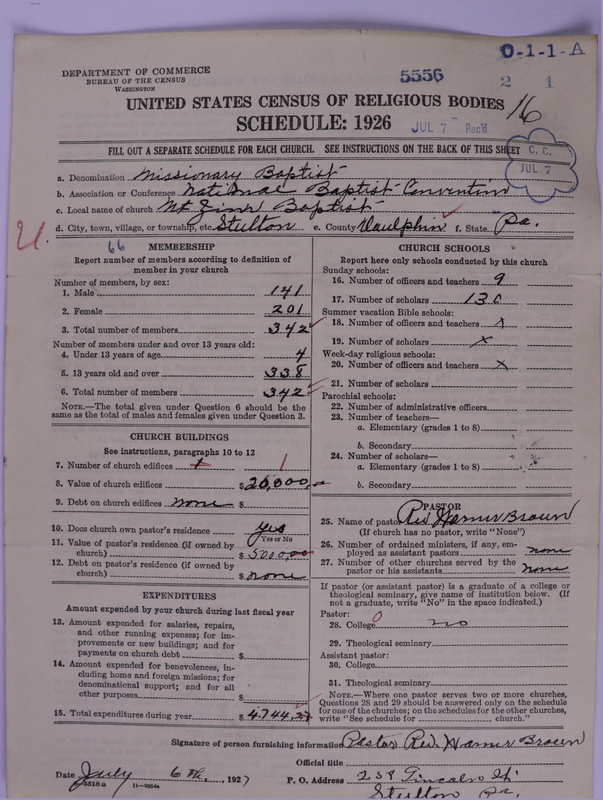 O-1-1-A
DEPARTMENT OF COMMERCE
BUREAU OF THE CENSUS
WASHINGTON
5556
2 1
UNITED STATES CENSUS OF RELIGIOUS BODIES
16
SCHEDULE: 1926
JUL 7 Rec'd
FILL OUT A SEPARATE SCHEDULE FOR EACH CHURCH. SEE INSTRUCTIONS ON THE BACK OF THIS SHEET
C. C.
JUL 7
a. Denomination Missionary Baptist
b. Association or Conference National Baptist Convention
c. Local name of church Mt Zion Baptist
d. City, town, village, or township, etc. Steelton e. County Dauphin f. State Pa.
U.
66
MEMBERSHIP
Report number of members according to definition of
member in your church
Number of members, by sex:
1. Male 141
2. Female 201
3. Total number of members 342
Number of members under and over 13 years old:
4. Under 13 years of age 4
5. 13 years old and over 338
6. Total number of members 342
NOTE.—The total given under Question 6 should be the
same as the total of males and females given under Question 3.
CHURCH BUILDINGS
See instructions, paragraphs 10 to 12
7. Number of church edifices 1 1
8. Value of church edifices $ 20,000,
9. Debt on church edifices none $
10. Does church own pastor's residence yes
Yes or No
11. Value of pastor's residence (if owned by
church) $ 5000,00
12. Debt on pastor's residence (if owned by
church) $ none
EXPENDITURES
Amount expended by your church during last fiscal year
13. Amount expended for salaries, repairs,
and other running expenses; for im-
provements or new buildings; and for
payments on church debt $
14. Amount expended for benevolences, in-
cluding home and foreign missions; for
denominational support; and for all
other purposes $
15. Total expenditures during year $ 4,744,
CHURCH SCHOOLS
Report here only schools conducted by this church
Sunday schools:
16. Number of officers and teachers 9
17. Number of scholars 130
Summer vacation Bible schools:
18. Number of officers and teachers x
19. Number of scholars x
Week-day religious schools:
20. Number of officers and teachers x
21. Number of scholars
Parochial schools:
22. Number of administrative officers
23. Number of teachers—
a. Elementary (grades 1 to 8)
b. Secondary
24. Number of scholars—
a. Elementary (grades 1 to 8)
b. Secondary
PASTOR
25. Name of pastor Rev Warner Brown
(If church has no pastor, write "None")
26. Number of ordained ministers, if any, em-
ployed as assistant pastors none
27. Number of other churches served by the
pastor or his assistants none
If pastor (or assistant pastor) is a graduate of a college or
theological seminary, give name of institution below. (If
not a graduate, write "No" in the space indicated.)
Pastor:
28. College 0 no
29. Theological seminary
Assistant pastor:
30. College
31. Theological seminary
NOTE.—Where one pastor serves two or more churches,
Questions 28 and 29 should be answered only on the schedule
for one of the churches; on the schedules for the other churches,
write "See schedule for church."
Signature of person furnishing information Pastor Rev. Warner Brown
Official title
Date July 6th, 1927
P. O. Address 258 St.
8518a 11—9084a
Steelton Pa.